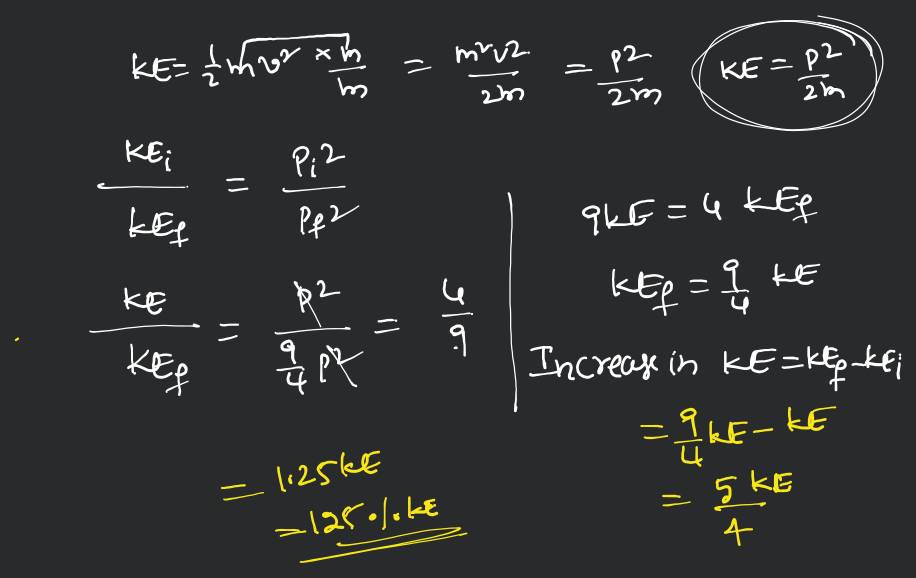 KE = 1/2 mv² × m/m = m²v²/2m = p²/2m KE = p²/2m
KEi/KEf = Pi²/Pf²
KE/KEf = p²/(9/4 p²) = 4/9
9KE = 4 KEf
KEf = 9/4 KE
Increase in KE = KEf - KEi
= 9/4 KE - KE
= 5 KE/4
= 1.25 KE
= 125 % KE